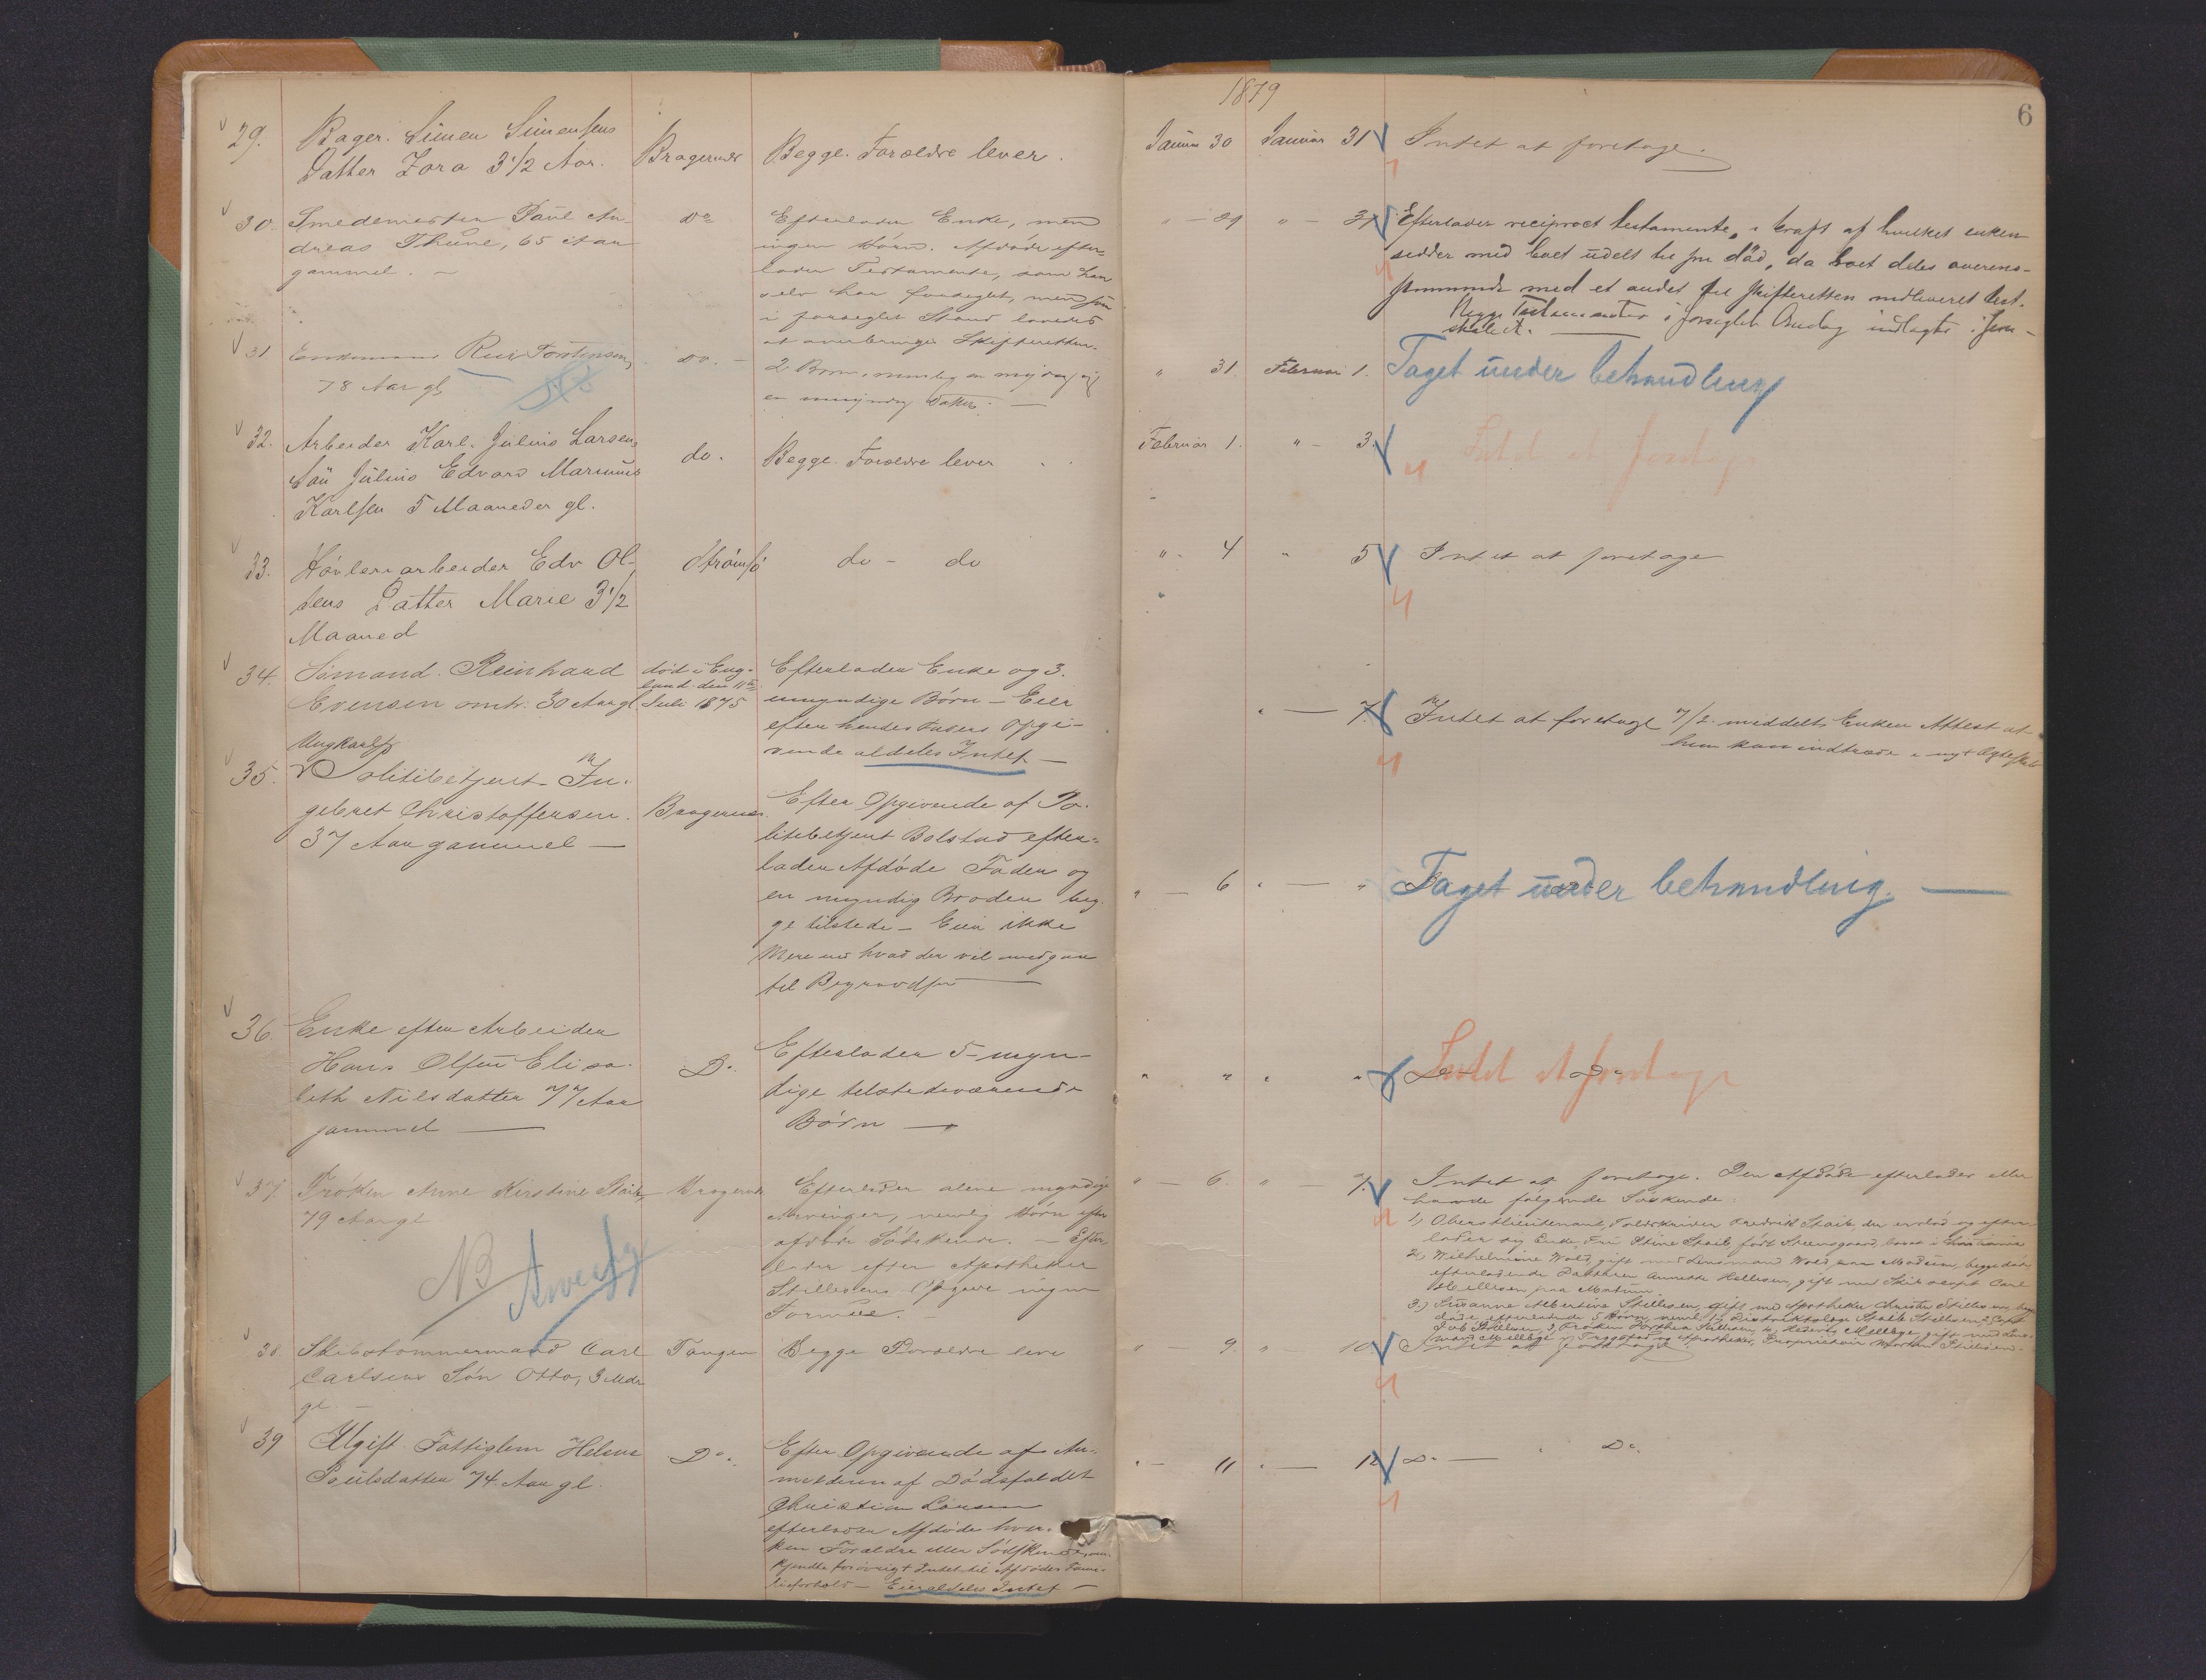 1879
6
29. Bager Simen Simensens
Datter Zora 3 1/2 Aar.
Bragernæs
Begge Forældre lever.
Januar 30
Januar 31
Intet at foretage.
30. Smedemester Paul An-
dreas Thune, 65 Aar
gammel.
Do
Efterlader Enke, men
ingen Børn. Afdøde efter-
lader Testamente, som han
selv har forseglet, men som
i forseglet Stand lovedes
at overbringes Skifteretten.
" - 29
" - 31
Efterlader reciproct testamente, i kraft af hvilket enken
sidder med boet udelt til sin död, da boet deles overens-
stemmende med et andet til skifteretten indleveret test.
Begge Testamenter i forseglet indlagte i
31
Torstensen,
78 Aar gl
do.
2 Børn, nemlig en myndig og
en umyndig Datter.
" 31.
Februar 1.
Taget under behandling
32. Arbeider Karl Julius Larsens
Søn Julius Edvard Marinius
Karlsen 5 Maaneder gl.
do.
Begge Forældre lever
Februar 1.
" - 3.
Intet at foretage
33. Høvleriarbeider Edv Ol-
sens Datter Marie 3 1/2
Maaned
Strømsø
do - do
" - 4
" 5
Intet at foretage
34. Sømand Reinhard
Evensen omtr. 30 Aar gl
død i Eng-
land den 11te
Juli 1875
Efterlader Enke og 3
umyndige Børn - Eier
efter hendes Opgi-
vende aldeles Intet -
" - 7.
Intet at foretage 7/2 meddelt Enken Attest at
hun kan indtræde i nyt Ægteskab
Ungkarl
35. Politibetjent In-
gebret Christoffersen.
37 Aar gammel -
Bragernæs.
Efter Opgivende af Po-
litibetjent Bolstad efter-
lader Afdøde Fader og
en myndig Broder beg-
ge tilstede - Eier ikke
Mere end hvad der vil medgaa
til Begravelse
" - 6
" - "
Taget under behandling. -
36. Enke efter Arbeider
Hans Olsen Elisa-
beth Nilsdatter 77 Aar
gammel -
Do
Efterlader 5 myn-
dige tilstedeværende
Børn -
" "
" "
Intet at foretage
37. Frøken Anne Kirstine Staib,
79 Aar gl
NB
Bragernæs
Efterlader alene myndige
Arvinger, nemlig Børn efter
afdøde Sødskende. - Efter-
lader efter Apotheker
Stillesens Opgave ingen
Formue.
" - 6.
" - 7.
Intet at foretage. Den Afdøde efterlader eller
havde følgende Søskende:
1) Oberstlieutenant, Toldskriver Fredrik Staib, der er død og efter-
lader sig Enke, Fru Stine Staib, født Steensgaard, boset i Christiania
2, Wilhelmine Wold, gift med Lensmand Wold paa Modum, begge døde
efterladende Datteren Annette Hellesen, gift med Skibscapt Carl
Hellesen paa Modum.
3.) Susanne Albertine Stillesen, gift med Apotheker Christian Stillesen, begge
døde efterladende 5 Børn, neml. 1) Distriktslæge Staib Stillesen 2, Capt
Stillesen, 3, Frøken Dorthea Stillesen, 4, Hedevig Mellbye, gift med Lens-
mand Mellbye i Trøgstad og Apotheker, Proprietair Morten Stillesen.
38. Skibstømmermand Carl
Carlsens Søn Otto, 3 Mdr
gl. -
Tangen
Begge Forældre leve
" - 9.
" - 10.
Intet at foretage
39 Ugift Fattiglem Helene
Poulsdatter 74 Aar gl.
Do.
Efter Opgivende af An-
melderen af Dødsfaldet
Christian Larsen
efterlader Afdøde hver-
ken Forældre eller Sødskende,
kjendte forøvrigt Intet til Afdødes Fami-
lieforhold - Eier aldeles Intet -
" - 11
" - 12
Do - Do.